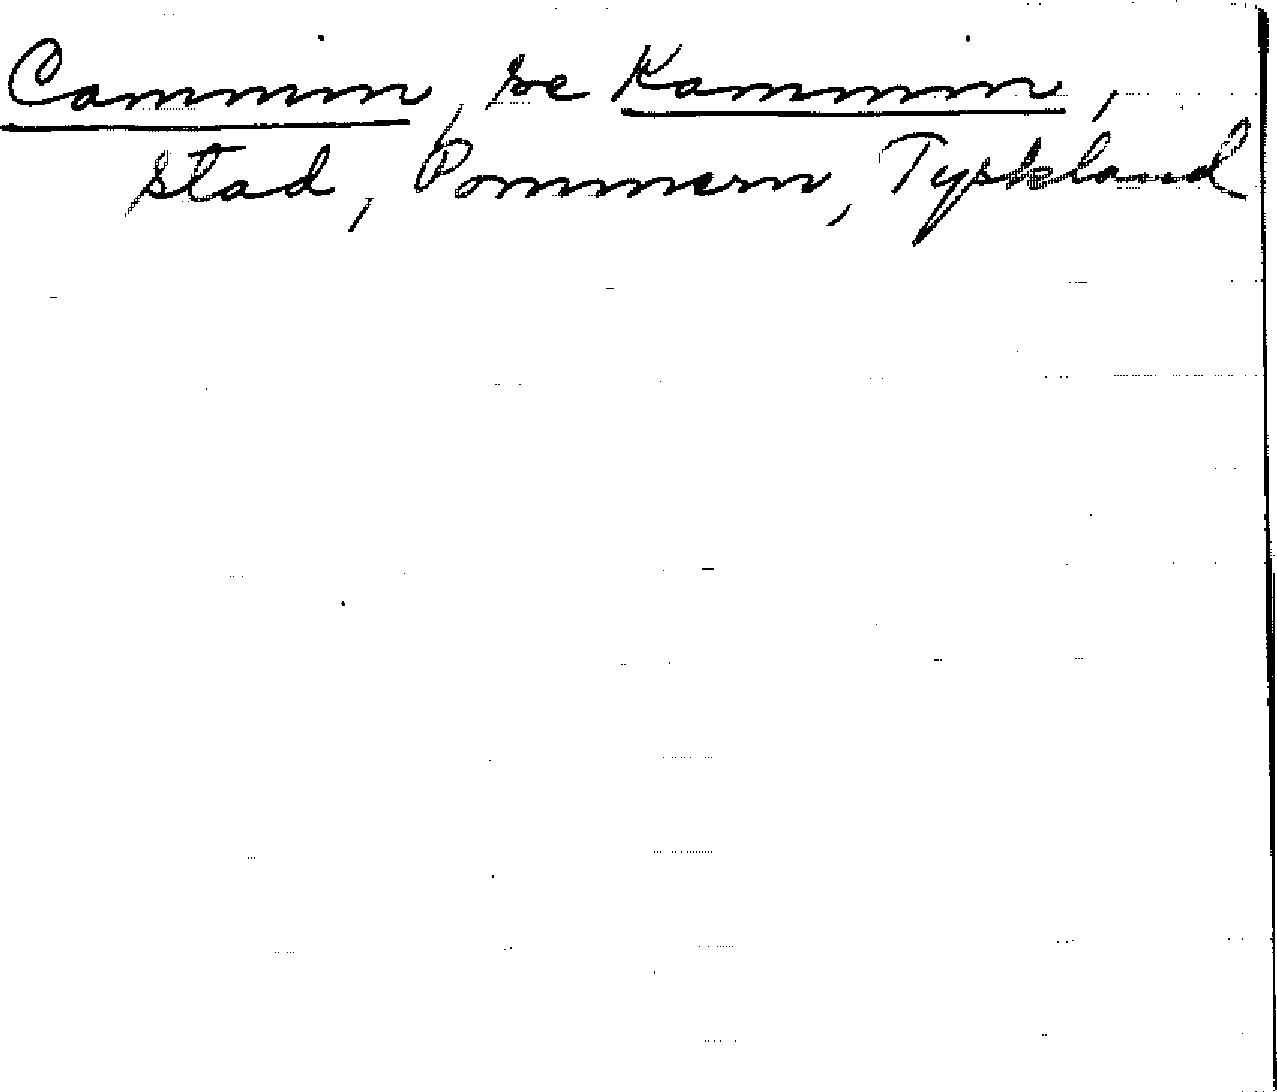 Cammin, se Kammin,
stad, Pommern, Tyskland